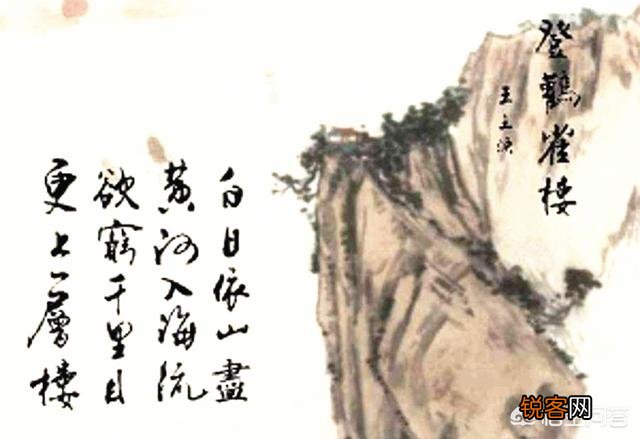 登鸛雀樓
王之渙
白日依山盡
黄河入海流
欲窮千里目
更上一層樓
锐客网
悟空问答